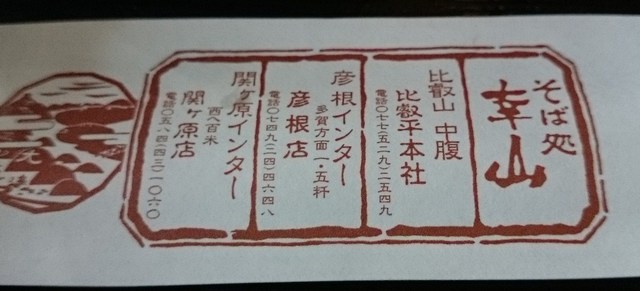 そば処
幸山
比叡山 中腹
比叡平本社
電話〇七七五二九)二五四九
彦根インター
多賀方面一・五粁
彦根店
電話〇七四九(二四)四六四八
関ヶ原インター
西八百米
関ヶ原店
電話〇五八四(四三)一〇六〇